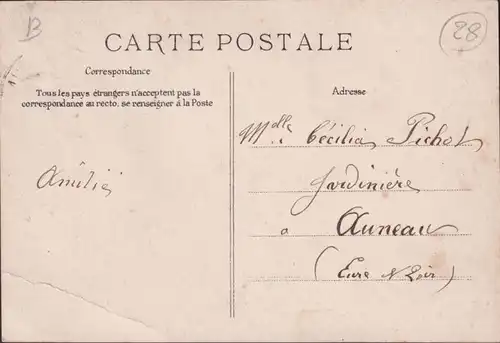 B
28
CARTE POSTALE
Correspondance
Tous les pays étrangers n'acceptent pas la
correspondance au recto, se renseigner à la Poste
Amélie
Adresse
Mdlle Cécilia Pichot
Jardinière
a
Auneau
(Eure & Loir)